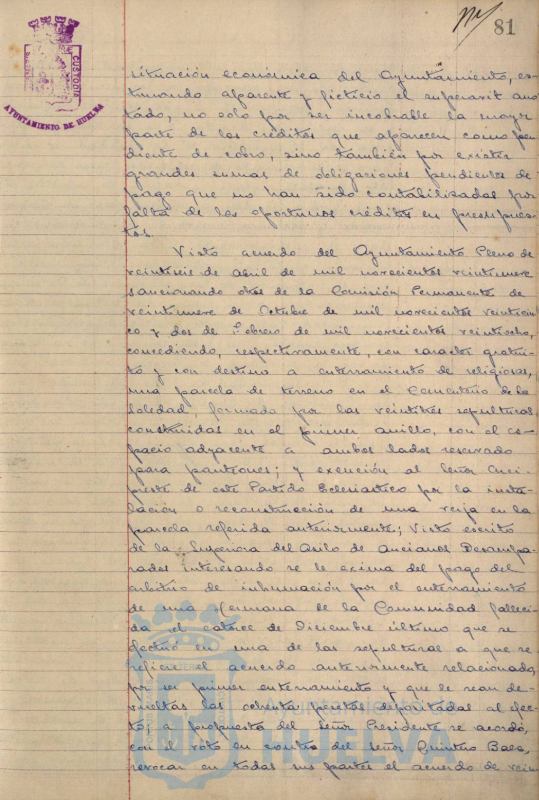 81
CUSTODIA
AYUNTAMIENTO DE HUELVA
situación económica del Ayuntamiento, es-
timando aparente y ficticio el superavit ano-
tado, no solo por ser incobrable la mayor
parte de los créditos que aparecen como pen-
diente de cobro, sino también por existir
grandes sumas de obligaciones pendientes de
pago que no han sido contabilizadas por
falta de los oportunos créditos en presupues-
tos.
Visto acuerdo del Ayuntamiento Pleno de
veintiseis de abril de mil novecientos veintinueve
sancionando otros de la Comisión Permanente de
veintinueve de Octubre de mil novecientos veinticin-
co y dos de Febrero de mil novecientos veintiocho,
concediendo, respectivamente, con caracter gratui-
to y con destino a enterramiento de religiosas,
una parcela de terreno en el Cementerio de la
Soledad, formada por las veintitres sepulturas
construidas en el primer anillo, con el es-
pacio adyacente a ambos lados reservado
para panteones; y exención al Señor Arci-
preste de este Partido Eclesiastico por la insta-
lación o reconstrucción de una verja en la
parcela referida anteriormente; Visto escrito
de la Superiora del Asilo de Ancianos Desampa-
rados interesando se le exima del pago del
arbitrio de inhumación por el enterramiento
de una Hermana de la Comunidad falleci-
da el catorce de Diciembre último que se
efectuó en una de las sepulturas a que se
refiere el acuerdo anteriormente relacionado,
por ser primer enterramiento y que le sean de-
vueltas las ochenta pesetas depositadas al efec-
to, a propuesta del Señor Presidente se acordó,
con el voto en contra del señor Quintero Baez,
revocar en todas sus partes el acuerdo de vein-
Ayuntamiento de
HUELVA